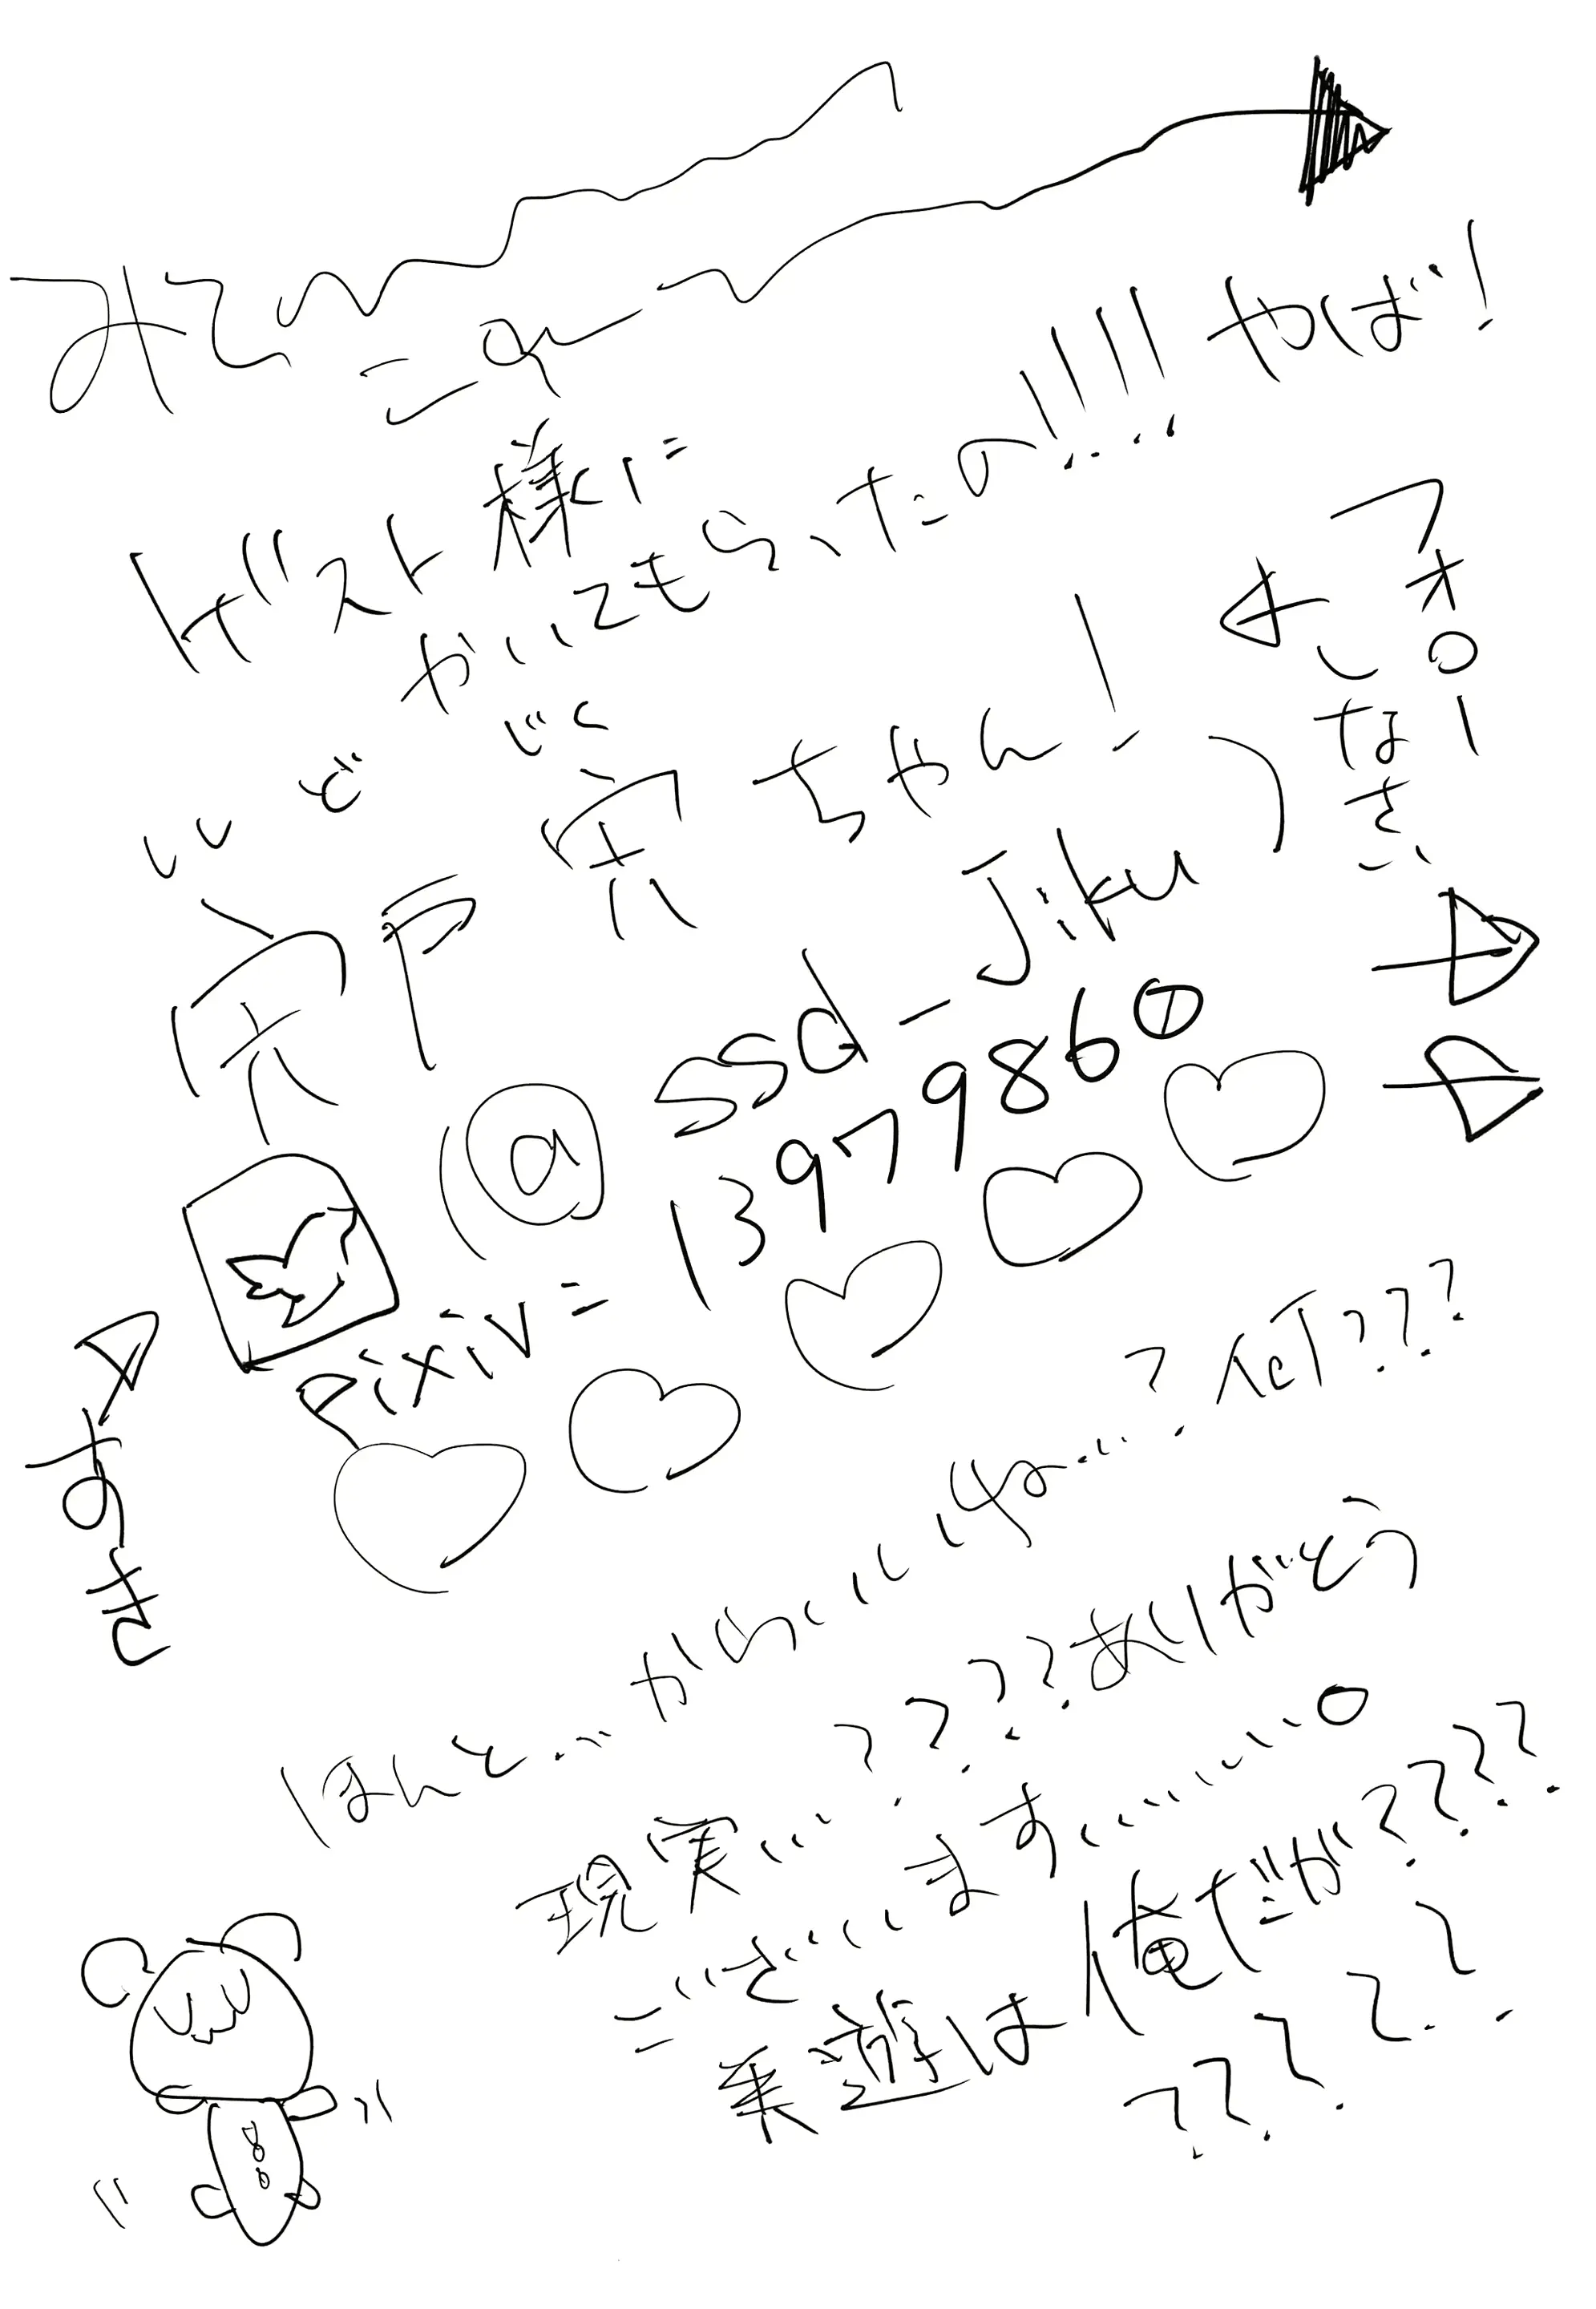 みてーーー
このー
ゲスト様に
かいてもらったの!!!! やば!
フォロー
しなさい
いど じく
井戸 宍 ちゃん!
(@ssd_Jiku)
pixiv=13979860
すき
ほんと… かわいいいね… ? 何???
現実…?????ありがとう
ございます……。
美遊は俺だが?????
?????